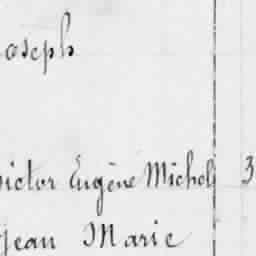 oseph
victor Eugène Michel 3
Jean Marie